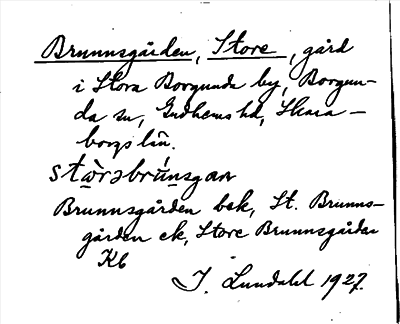 Brunnsgården, Store, gård
i Stora Borgunda by, Borgun-
da sn, Gudhems hd, Skara-
borgs län.
stœ̀rəbrún̄sgan
Brunnsgården bek, St. Brunns-
gården ek, Store Brunnsgården
Kb
J. Lundahl 1927.